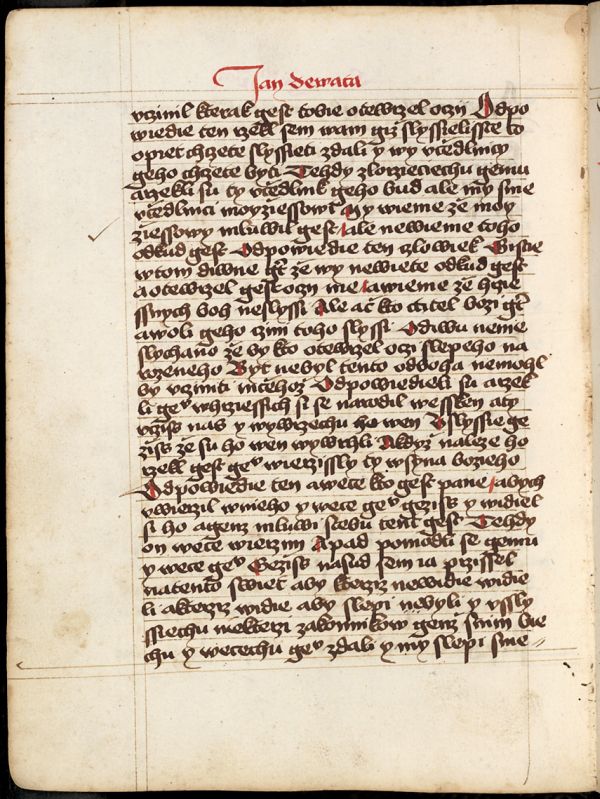 Jan dewata
vczinil kterak gest tobie otewrzel oczii Odpo
wiedie ten rzekl sem wam giz slyssielisste co
opiet chczete slyssieti zdali y wy vcedlniczy
geho chczete byti Tehdy zlorzieciechu gemu
a rzekli su ty vcedlnik geho bud ale my sme
vcedlnici moyziessowi My wieme ze moy
ziessowy mluwil gest ale newieme toho
odkud gest Odpowiedie ten czlowiek Bistie
w tom diwne gt ze wy newiete odkud gest
a otewrzel gest oczii me a wieme ze hrzie
ssnych boh neslyssi Ale ac kto ctitel bozi gt
a woli geho czini toho slyssi Odiwu nenie
slychano ze by kto otewrzel oczi slepeho na
rozeneho Byt nebyl tento odboha nemohl
by vcziniti niczehoz Odpowiediechu su a rzek
li geu whrziessich si se narodil wessken a ty
vcziss nas y wywrzechu ho wen Vslyssie ge
ziss ze su ho wen wywrhli Akdyz naleze ho
rzekl gest geu wierzissly ty wsyna bozieho
Odpowiedie ten a wece kto gest pane abych
vwierzil wnieho y wece geu geziss y widiel
si ho a genz mluwi stebu tent gest Tehdy
on wece wierzim A pad pomodli se gemu
y wece geu Geziss nasud sem ia przissel
natento swiet aby kterziz newidie widie
li a kterziz widie aby slepi nebyli y vssly
ssiechu niekterzi zakonnikow genz snim bie
chu y wecechu geu zdali y my slepi sme